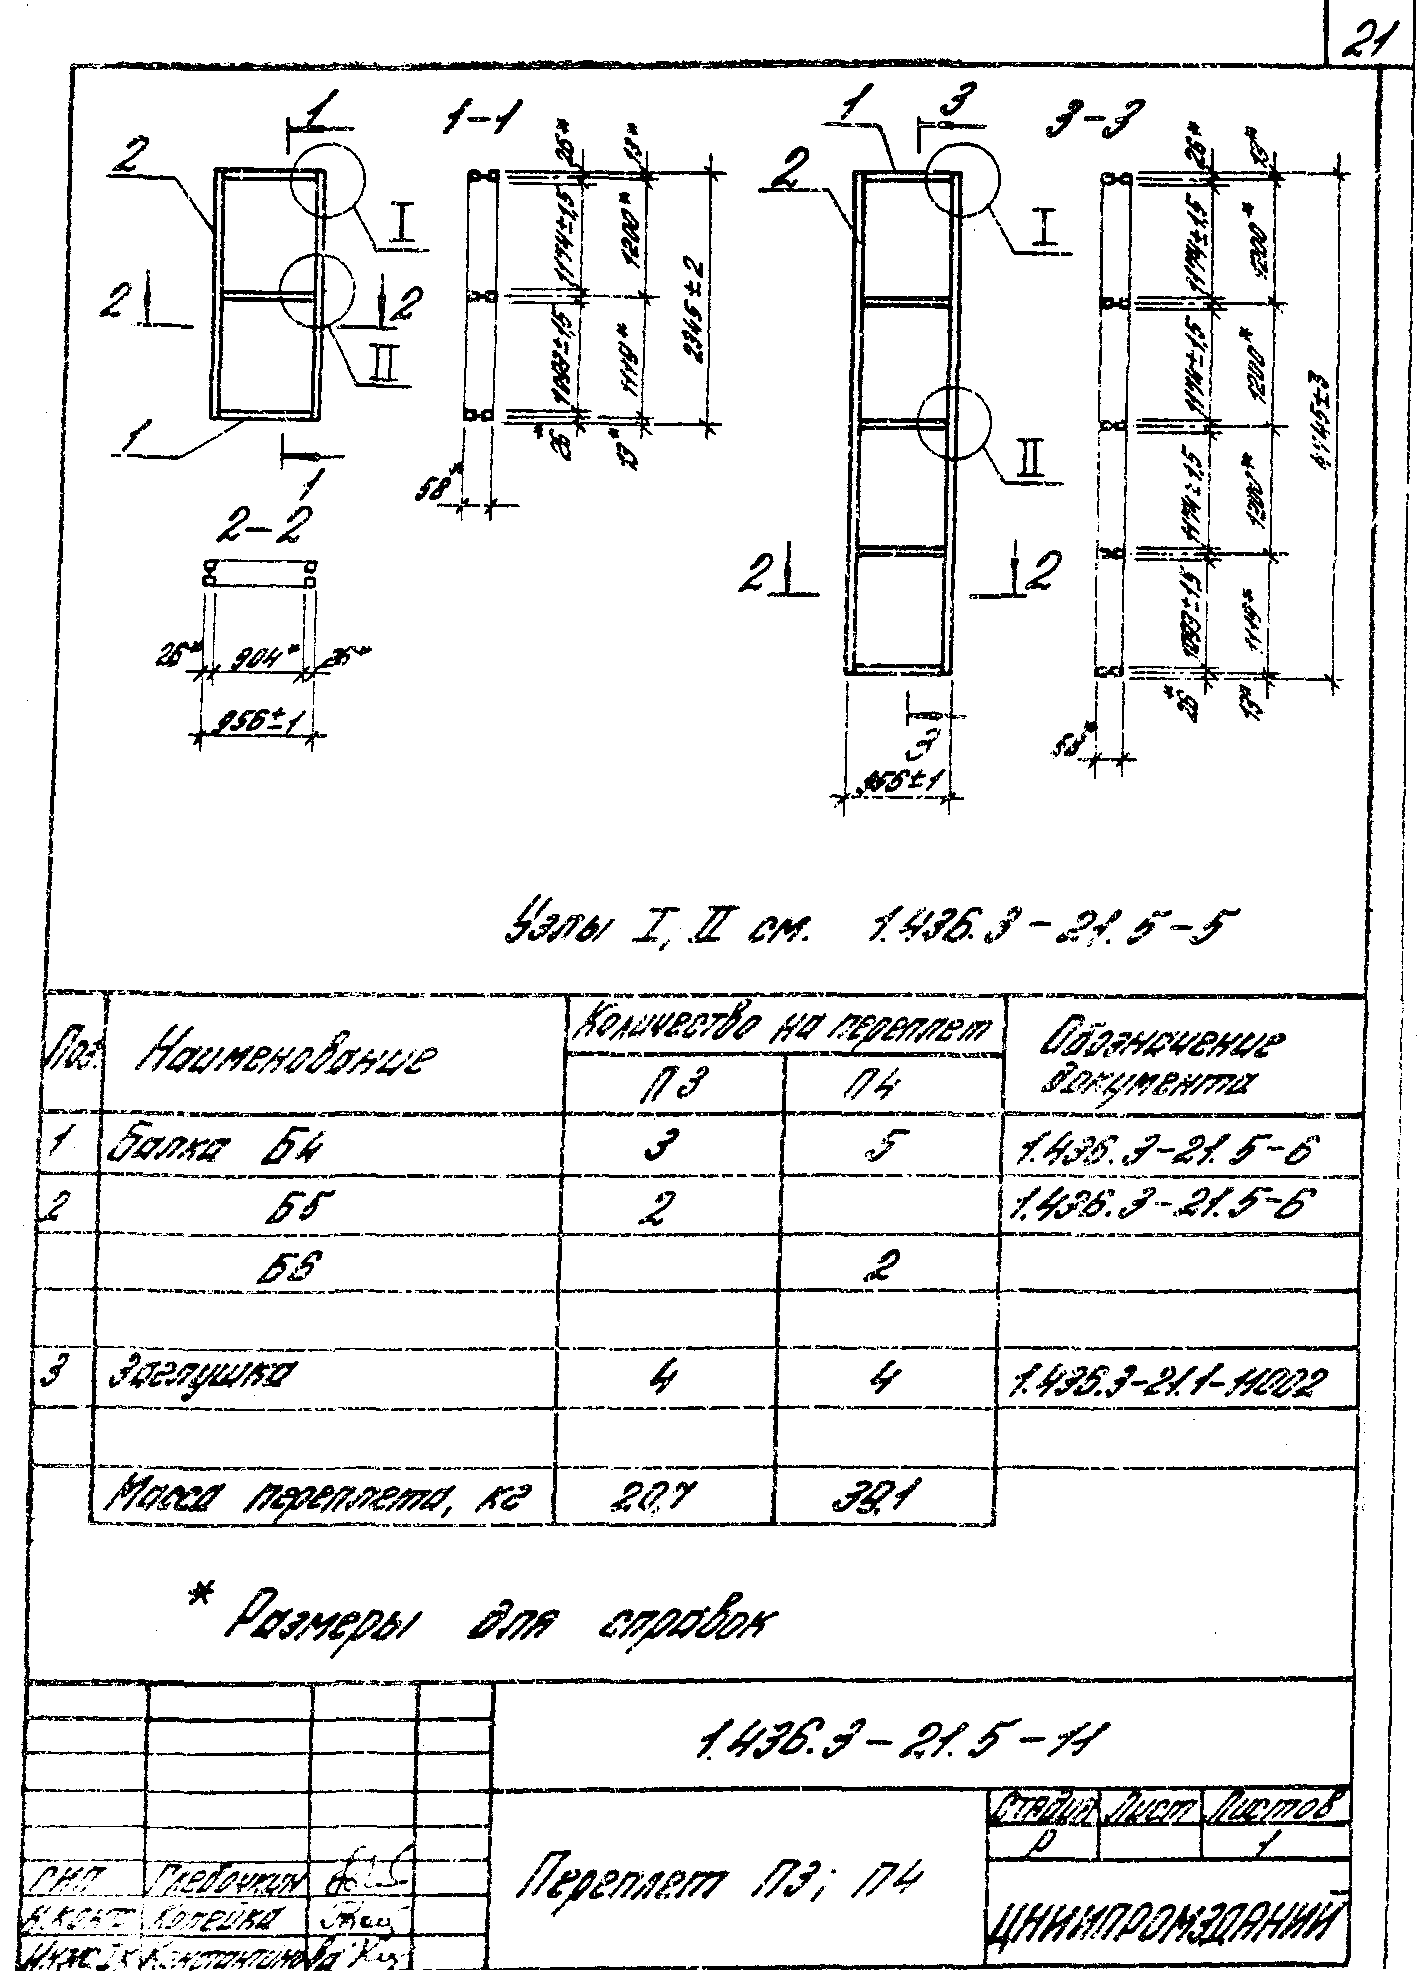 21
1
1-1
2
I
2 2
II
1
1
2-2
26* 904* 26*
956±1
26* 13*
1174±1,5 1200*
2345±2
1093±1,5 1119*
26* 13*
58*
1 3
3-3
2
I
II
2 2
3
956±1
26* 13*
1174±1,5 1200*
1174±1,5 1200*
1174±1,5 1200*
1093±1,5 1119*
26* 13*
58*
Узлы I, II см. 1.436.3-21.5-5
Поз. Наименование Количество на переплет Обозначение
П3 П4 документа
1 Балка Б4 3 5 1.436.3-21.5-6
2 Б5 2 1.436.3-21.5-6
Б6 2
3 Заглушка 4 4 1.436.3-21.1-11002
Масса переплета, кг 20,7 39,1
* Размеры для справок
1.436.3-21.5-11
Стадия Лист Листов
Р 1
Переплет П3; П4
ГИП Глебочкин
Н.конт Копейка
Константинова
ЦНИИПРОМЗДАНИЙ